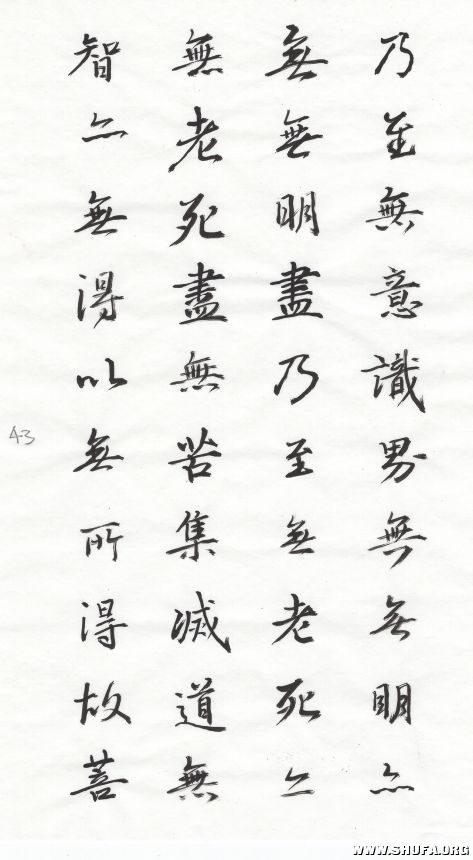 乃至無意識界無無明亦
無無明盡乃至無老死亦
無老死盡無苦集滅道無
智亦無得以無所得故菩
43
WWW.SHUFA.ORG